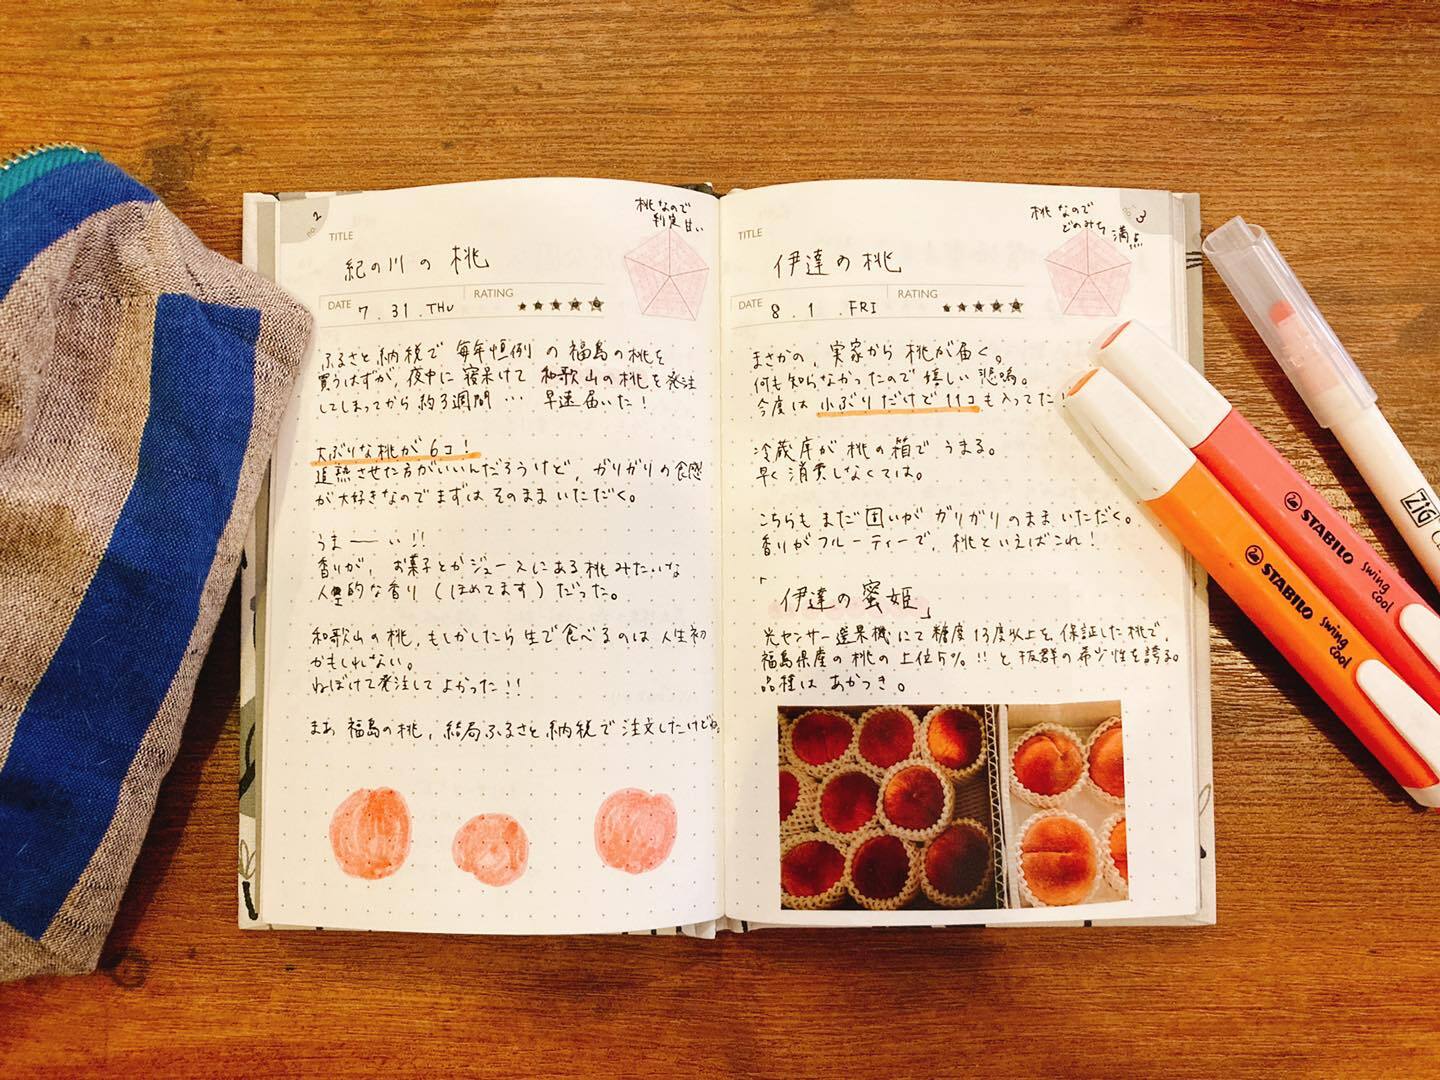 no. 2
桃なので
判定甘い
TITLE
紀の川の桃
DATE 7.31.THU RATING ★★★★★
ふるさと納税で毎年恒例の福島の桃を
買うはずが、夜中に寝呆けて和歌山の桃を発注
してしまってから約3週間… 早速届いた!
大ぶりな桃が6コ!
追熟させた方がいいんだろうけど、ガリガリの食感
が大好きなのでまずはそのままいただく。
うまーーい!!
香りが、お菓子とかジュースにある桃みたいな
人工的な香り(ほめてます)だった。
和歌山の桃、もしかしたら生で食べるのは人生初
かもしれない。
ねぼけて発注してよかった!!
まあ福島の桃、結局ふるさと納税で注文したけどね。
no. 3
桃なので
どのみち満点
TITLE
伊達の桃
DATE 8.1.FRI RATING ★★★★★
まさかの、実家から桃が届く。
何も知らなかったので嬉しい悲鳴。
今度は小ぶりだけど11コも入ってた!
冷蔵庫が桃の箱でうまる。
早く消費しなくては。
こちらもまだ固いがガリガリのままいただく。
香りがフルーティーで、桃といえばこれ!
「伊達の蜜姫」
光センサー選果機にて糖度13度以上を保証した桃で、
福島県産の桃の上位5%!!と抜群の希少性を誇る。
品種はあかつき。
STABILO swing cool
STABILO swing cool
ZIG